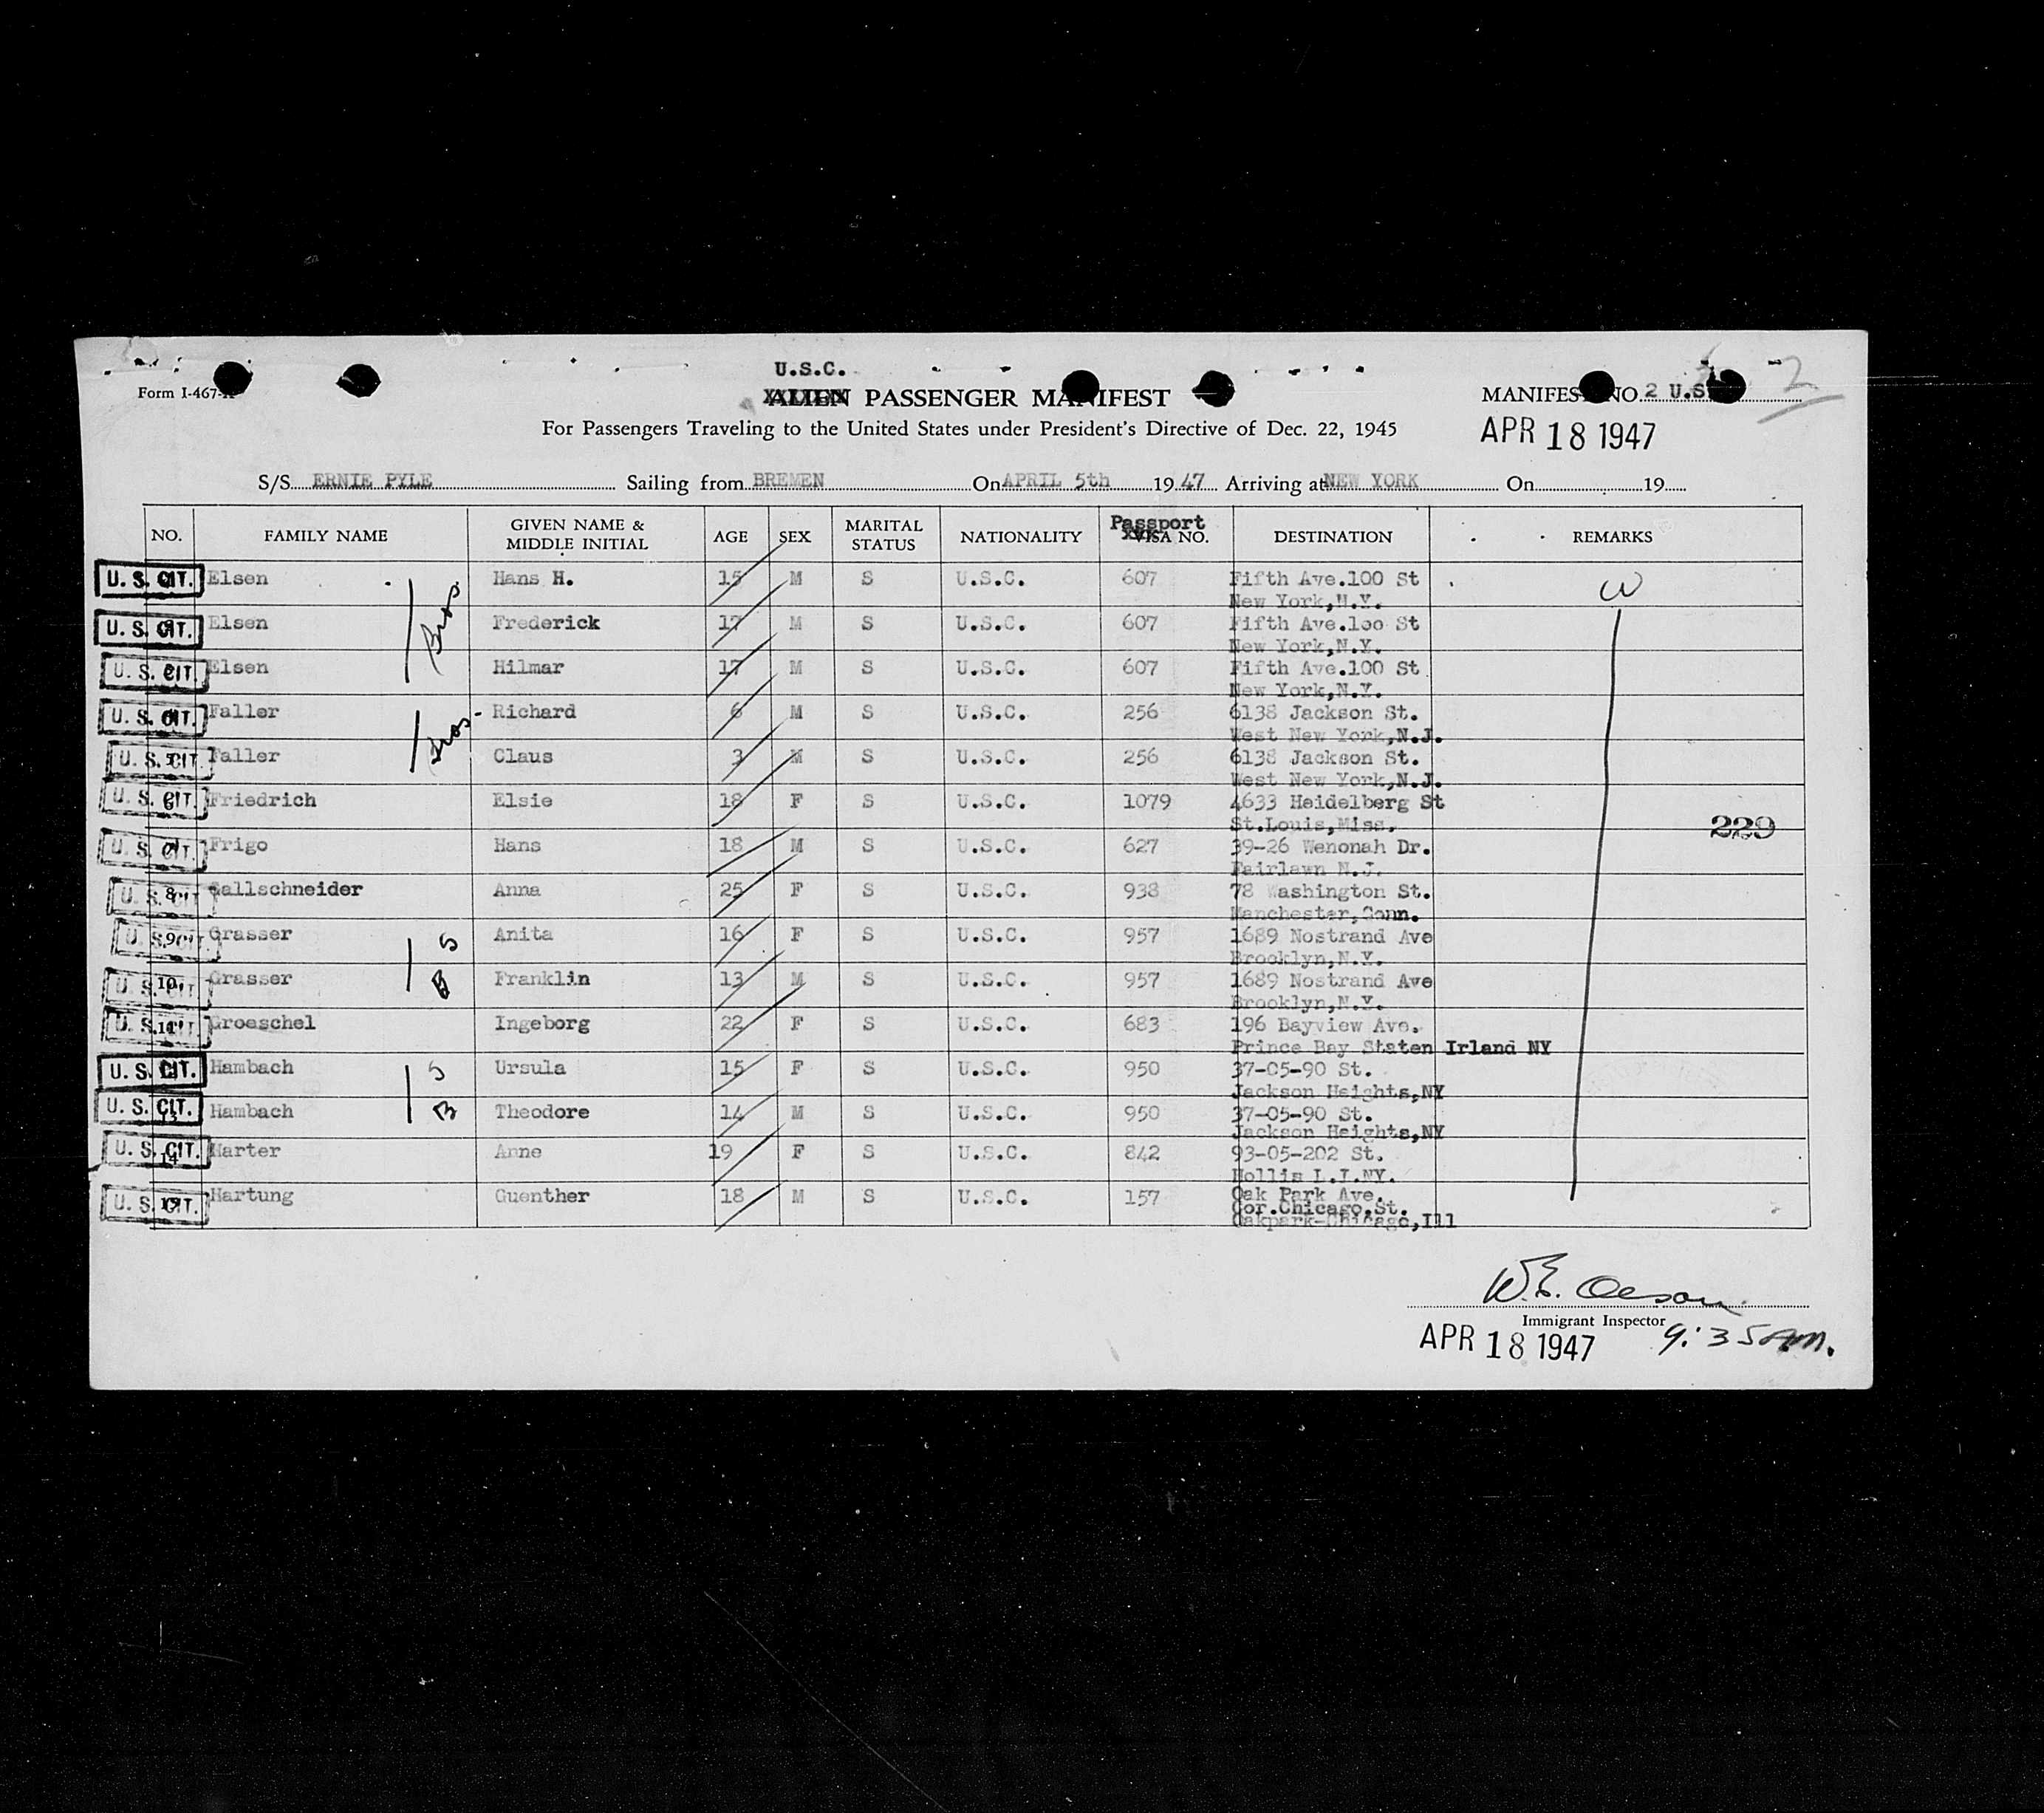 U.S.C.
Form I-467-
ALIEN PASSENGER MANIFEST
MANIFEST NO. 2 U.S. 2
For Passengers Traveling to the United States under President's Directive of Dec. 22, 1945
APR 18 1947
S/S ERNIE PYLE Sailing from BREMEN On APRIL 5th 1947 Arriving at NEW YORK On 19
NO. FAMILY NAME GIVEN NAME & MIDDLE INITIAL AGE SEX MARITAL STATUS NATIONALITY Passport VISA NO. DESTINATION REMARKS
U. S. CIT. Elsen Hans H. 15 M S U.S.C. 607 Fifth Ave.100 St W
New York,N.Y.
U. S. CIT. Elsen Bros. Frederick 17 M S U.S.C. 607 Fifth Ave.100 St
New York,N.Y.
U. S. CIT. Elsen Hilmar 17 M S U.S.C. 607 Fifth Ave.100 St
New York,N.Y.
U. S. CIT. Faller Bros. Richard 6 M S U.S.C. 256 6138 Jackson St.
West New York,N.J.
U. S. CIT. Faller Claus 3 M S U.S.C. 256 6138 Jackson St.
West New York,N.J.
U. S. CIT. Friedrich Elsie 18 F S U.S.C. 1079 4633 Heidelberg St
St.Louis,Miss. 229
U. S. CIT. Frigo Hans 18 M S U.S.C. 627 39-26 Wenonah Dr.
Fairlawn N.J.
U. S. CIT. 8 Gallschneider Anna 25 F S U.S.C. 938 78 Washington St.
Manchester,Conn.
U. S. CIT. 9 Grasser S Anita 16 F S U.S.C. 957 1689 Nostrand Ave
Brooklyn,N.Y.
U. S. CIT. 10 Grasser B Franklin 13 M S U.S.C. 957 1689 Nostrand Ave
Brooklyn,N.Y.
U. S. CIT. 11 Groeschel Ingeborg 22 F S U.S.C. 683 196 Bayview Ave.
Prince Bay Staten Irland NY
U. S. CIT. Hambach S Ursula 15 F S U.S.C. 950 37-05-90 St.
Jackson Heights,NY
U. S. CIT. Hambach B Theodore 14 M S U.S.C. 950 37-05-90 St.
Jackson Heights,NY
U. S. CIT. 14 Harter Anne 19 F S U.S.C. 842 93-05-202 St.
Hollis L.I.NY.
U. S. CIT. Hartung Guenther 18 M S U.S.C. 157 Oak Park Ave.
Cor.Chicago,St.
Oakpark-Chicago,Ill
W.E. Oleson
Immigrant Inspector
APR 18 1947 9:35 AM.